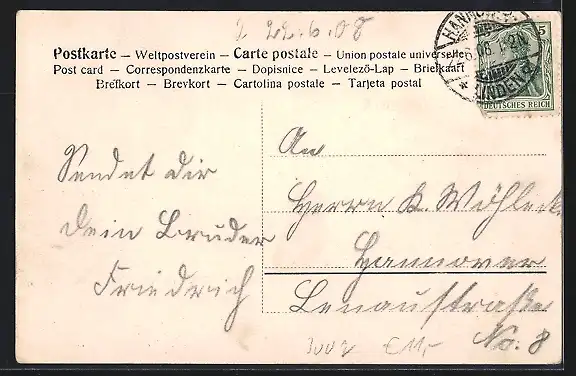 22.6.08
Postkarte – Weltpostverein – Carte postale – Union postale universelle
Post card – Correspondenzkarte – Dopisnice – Levelező-Lap – Briefkaart
Brefkort – Brevkort – Cartolina postale – Tarjeta postal
HANNOVER
LINDEN
5
DEUTSCHES REICH
An
Herrn K.
Hannover
Lenaustraße
No. 8
Sendet dir
dein Bruder
Friedrich
€ 11,-